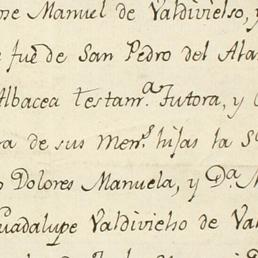 ne Manuel de Valdivielso, y
e fuè de San Pedro del Ala
Albacea Testam.ª Tutora, y
a de sus Men.s hijas la S
Dolores Manuela, y D.ª M
Guadalupe Valdivielso de Val